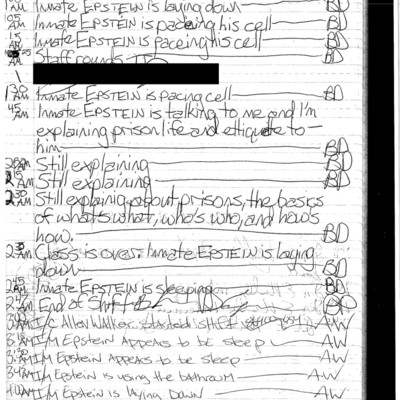 AM Inmate EPSTEIN is laying down BD
05 AM Inmate EPSTEIN is paceing his cell BD
15 AM Inmate EPSTEIN is paceing his cell BD
Staff rounds
130 AM Inmate EPSTEIN is pacing cell BD
45 AM Inmate EPSTEIN is talking to me and I'm
explaining prison life and ettiquete to
him BD
200 AM Still explaining BD
215 AM Still explaining BD
230 AM Still explaining about prisons, the basics
of what's what, who's who, and how's
how. BD
235 AM Class is over. Inmate EPSTEIN is laying
down BD
245 AM Inmate EPSTEIN is sleeping BD
247 AM End of Shift BD
300 AM I/C Allen Walker started shift AW
315 AM I/M Epstein Appears to be sleep AW
330 AM I/M Epstein Appears to be sleep AW
AM I/M Epstein is using the bathroom AW
400 AM I/M Epstein is laying Down AW